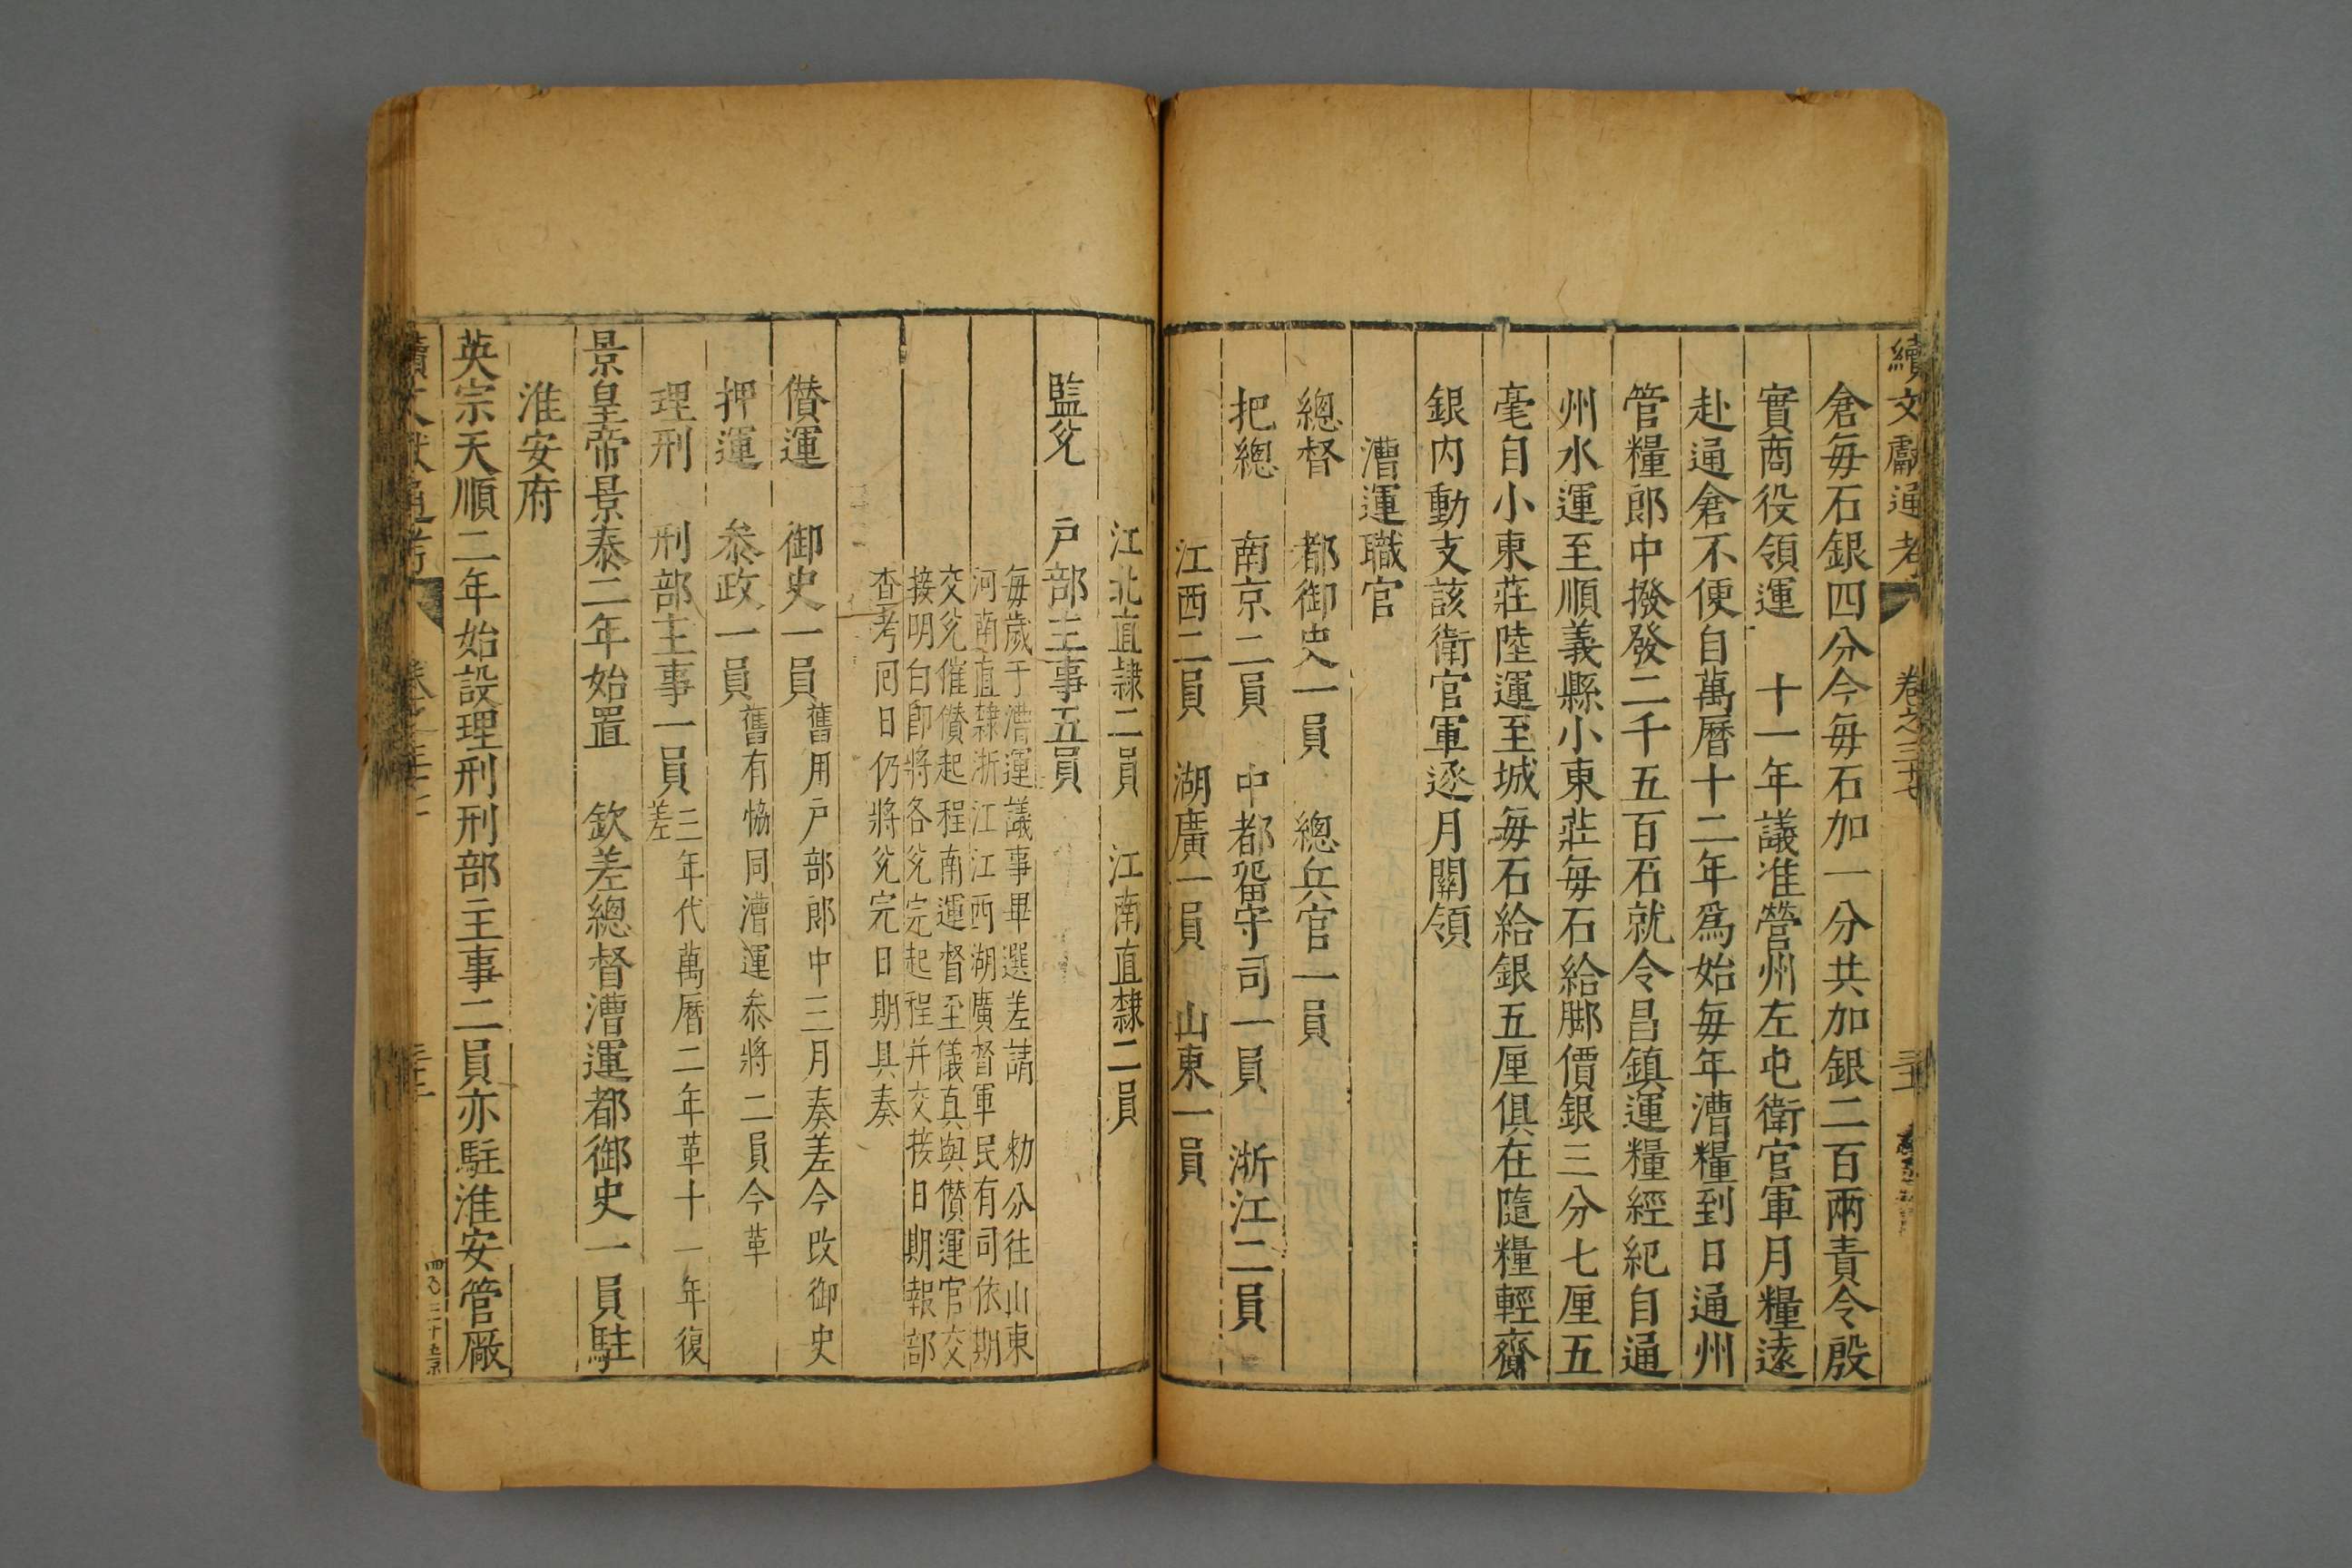 續文獻通考 卷之三十七
倉每石銀四分今每石加一分共加銀二百兩責令殷
實商役領運 十一年議准營州左屯衛官軍月糧遠
赴通倉不便自萬曆十二年爲始每年漕糧到日通州
管糧郎中撥發二千五百石就令昌鎮運糧經紀自通
州水運至順義縣小東莊每石給脚價銀三分七厘五
毫自小東莊陸運至城每石給銀五厘俱在隨糧輕齎
銀内動支該衛官軍逐月關領
漕運職官
總督 都御史一員 總兵官一員
把總 南京二員 中都畱守司一員 浙江二員
江西二員 湖廣一員 山東一員
江北直隸二員 江南直隸二員
監兌 戶部主事五員
每歲于漕運議事畢選差請 勑分往山東
河南直隸浙江江西湖廣督軍民有司依期
交兌催儧起程南運督至儀真與儧運官交
接明白即將各兌完起程并交接日期報部
查考囘日仍將兌完日期具奏
儧運 御史一員舊用戶部郎中三月奏差今改御史
押運 叅政一員舊有恊同漕運叅將二員今革
理刑 刑部主事一員三年代萬曆二年革十一年復
差
景皇帝景泰二年始置 欽差總督漕運都御史一員駐
淮安府
英宗天順二年始設理刑刑部主事二員亦駐淮安管厰